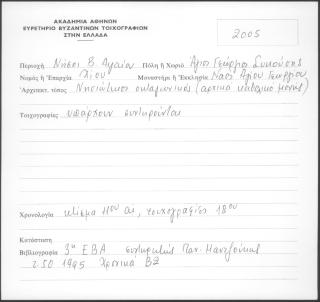 ΑΚΑΔΗΜΙΑ ΑΘΗΝΩΝ
ΕΥΡΕΤΗΡΙΟ ΒΥΖΑΝΤΙΝΩΝ ΤΟΙΧΟΓΡΑΦΙΩΝ
ΣΤΗΝ ΕΛΛΑΔΑ
2005
Περιοχή Νήσοι Β Αιγαίου Πόλη ή Χωριό Άγιος Γεώργιος Συκούσης
Νομός ή Επαρχία Χίου Μοναστήρι ή Εκκλησία Ναός Αγίου Γεωργίου
Αρχιτεκτ. τύπος Νησιώτικος οκταγωνικός (αρχικά καθολικό μονής)
Τοιχογραφίες υπάρχουν συντηρούνται
Χρονολογία κτίσμα 11ου αι, τοιχογραφίες 18ου
Κατάσταση
Βιβλιογραφία 3η ΕΒΑ συντηρητής Παν.
50 1995 Χρονικά Β2